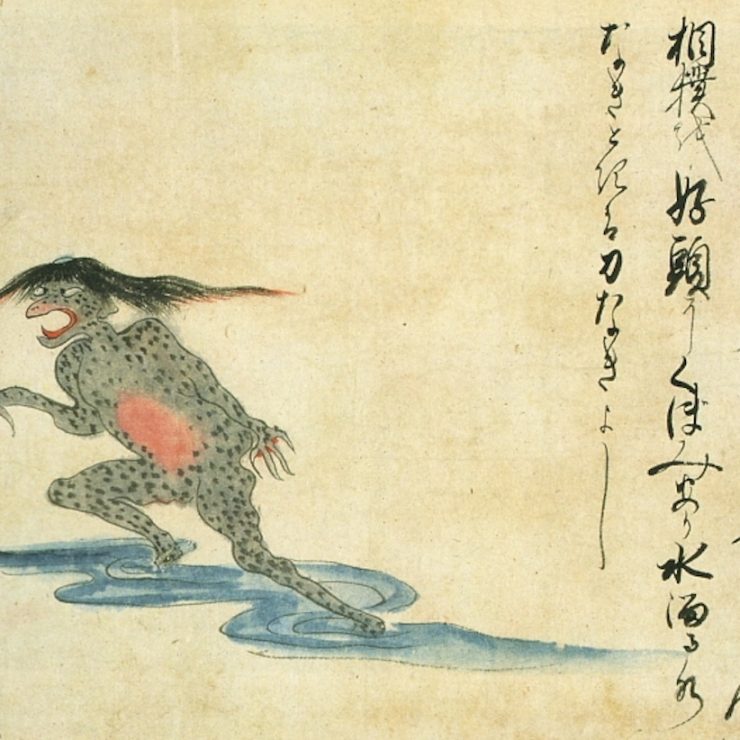 相撲を好頭にくぼみあり水溜る水
なきときは力なきよし